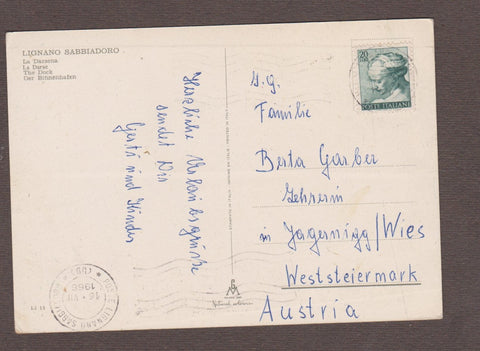 LIGNANO SABBIADORO
La Darsena
La Darse
The Dock
Der Binnenhafen
Herzliche Urlaubsgrüße
sendet Dir
Gerti und Kinder
S.g.
Familie
Berta Garber
Lehrerin
in Jagernigg/Wies
Weststeiermark
Austria
POSTE ITALIANE
LIGNANO SABBIADORO
1966